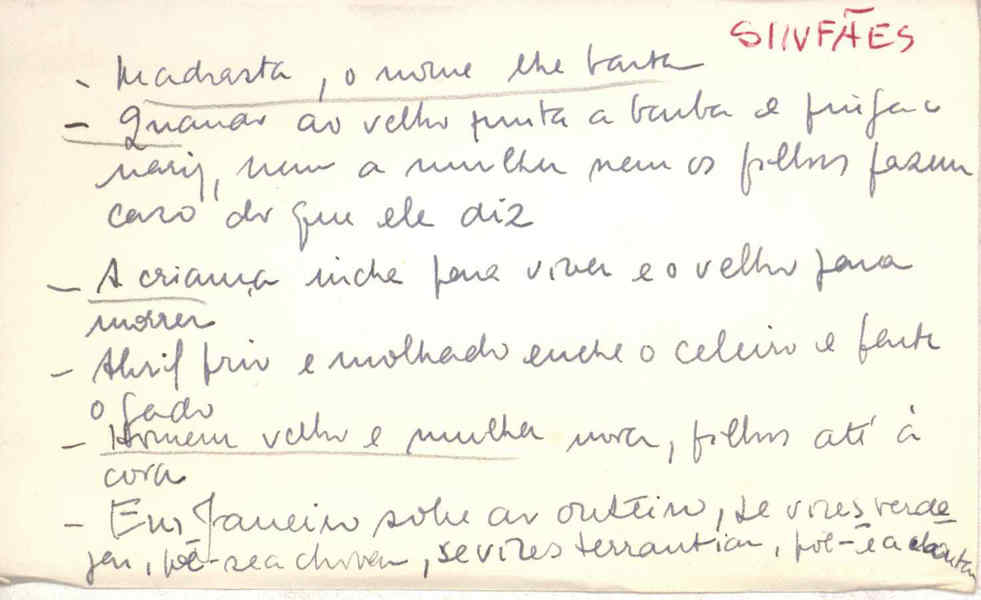 SINFÃES
- Madrasta, o nome lhe basta
- Quando ao velho junta a barba e pinga o
nariz, nem a mulher nem os filhos fazem
caso do que ele diz
- A criança inche para viver e o velho para
morrer
- Abril frio e molhado enche o celeiro e farta
o gado
- Homem velho e mulher nova, filhos até à
cova
- Em Janeiro sobe ao outeiro, se vires verde
jar, põe-se a chorar, se vires terrantiar, põe-te a cantar